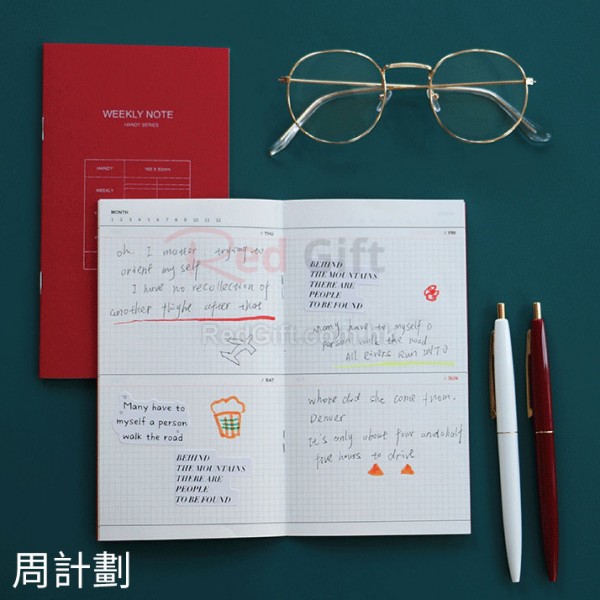 WEEKLY NOTE
HANDY SERIES
HANDY
WEEKLY
MONTH
1 2 3 4 5 6 7 8 9 10 11 12
/ THU
/ FRI
oh I mutter trying to
orient my self
I have no recollection of
another flight after that
BEHIND
THE MOUNTAINS
THERE ARE
PEOPLE
TO BE FOUND
many have to myself a
person walk the road
All Rivers Run INTO
Red Gift
RedGift.com
/ SAT
/ SUN
Many have to
myself a person
walk the road
BEHIND
THE MOUNTAINS
THERE ARE
PEOPLE
TO BE FOUND
where did she come from.
Denver
It's only about four and half
five hours to drive
周計劃